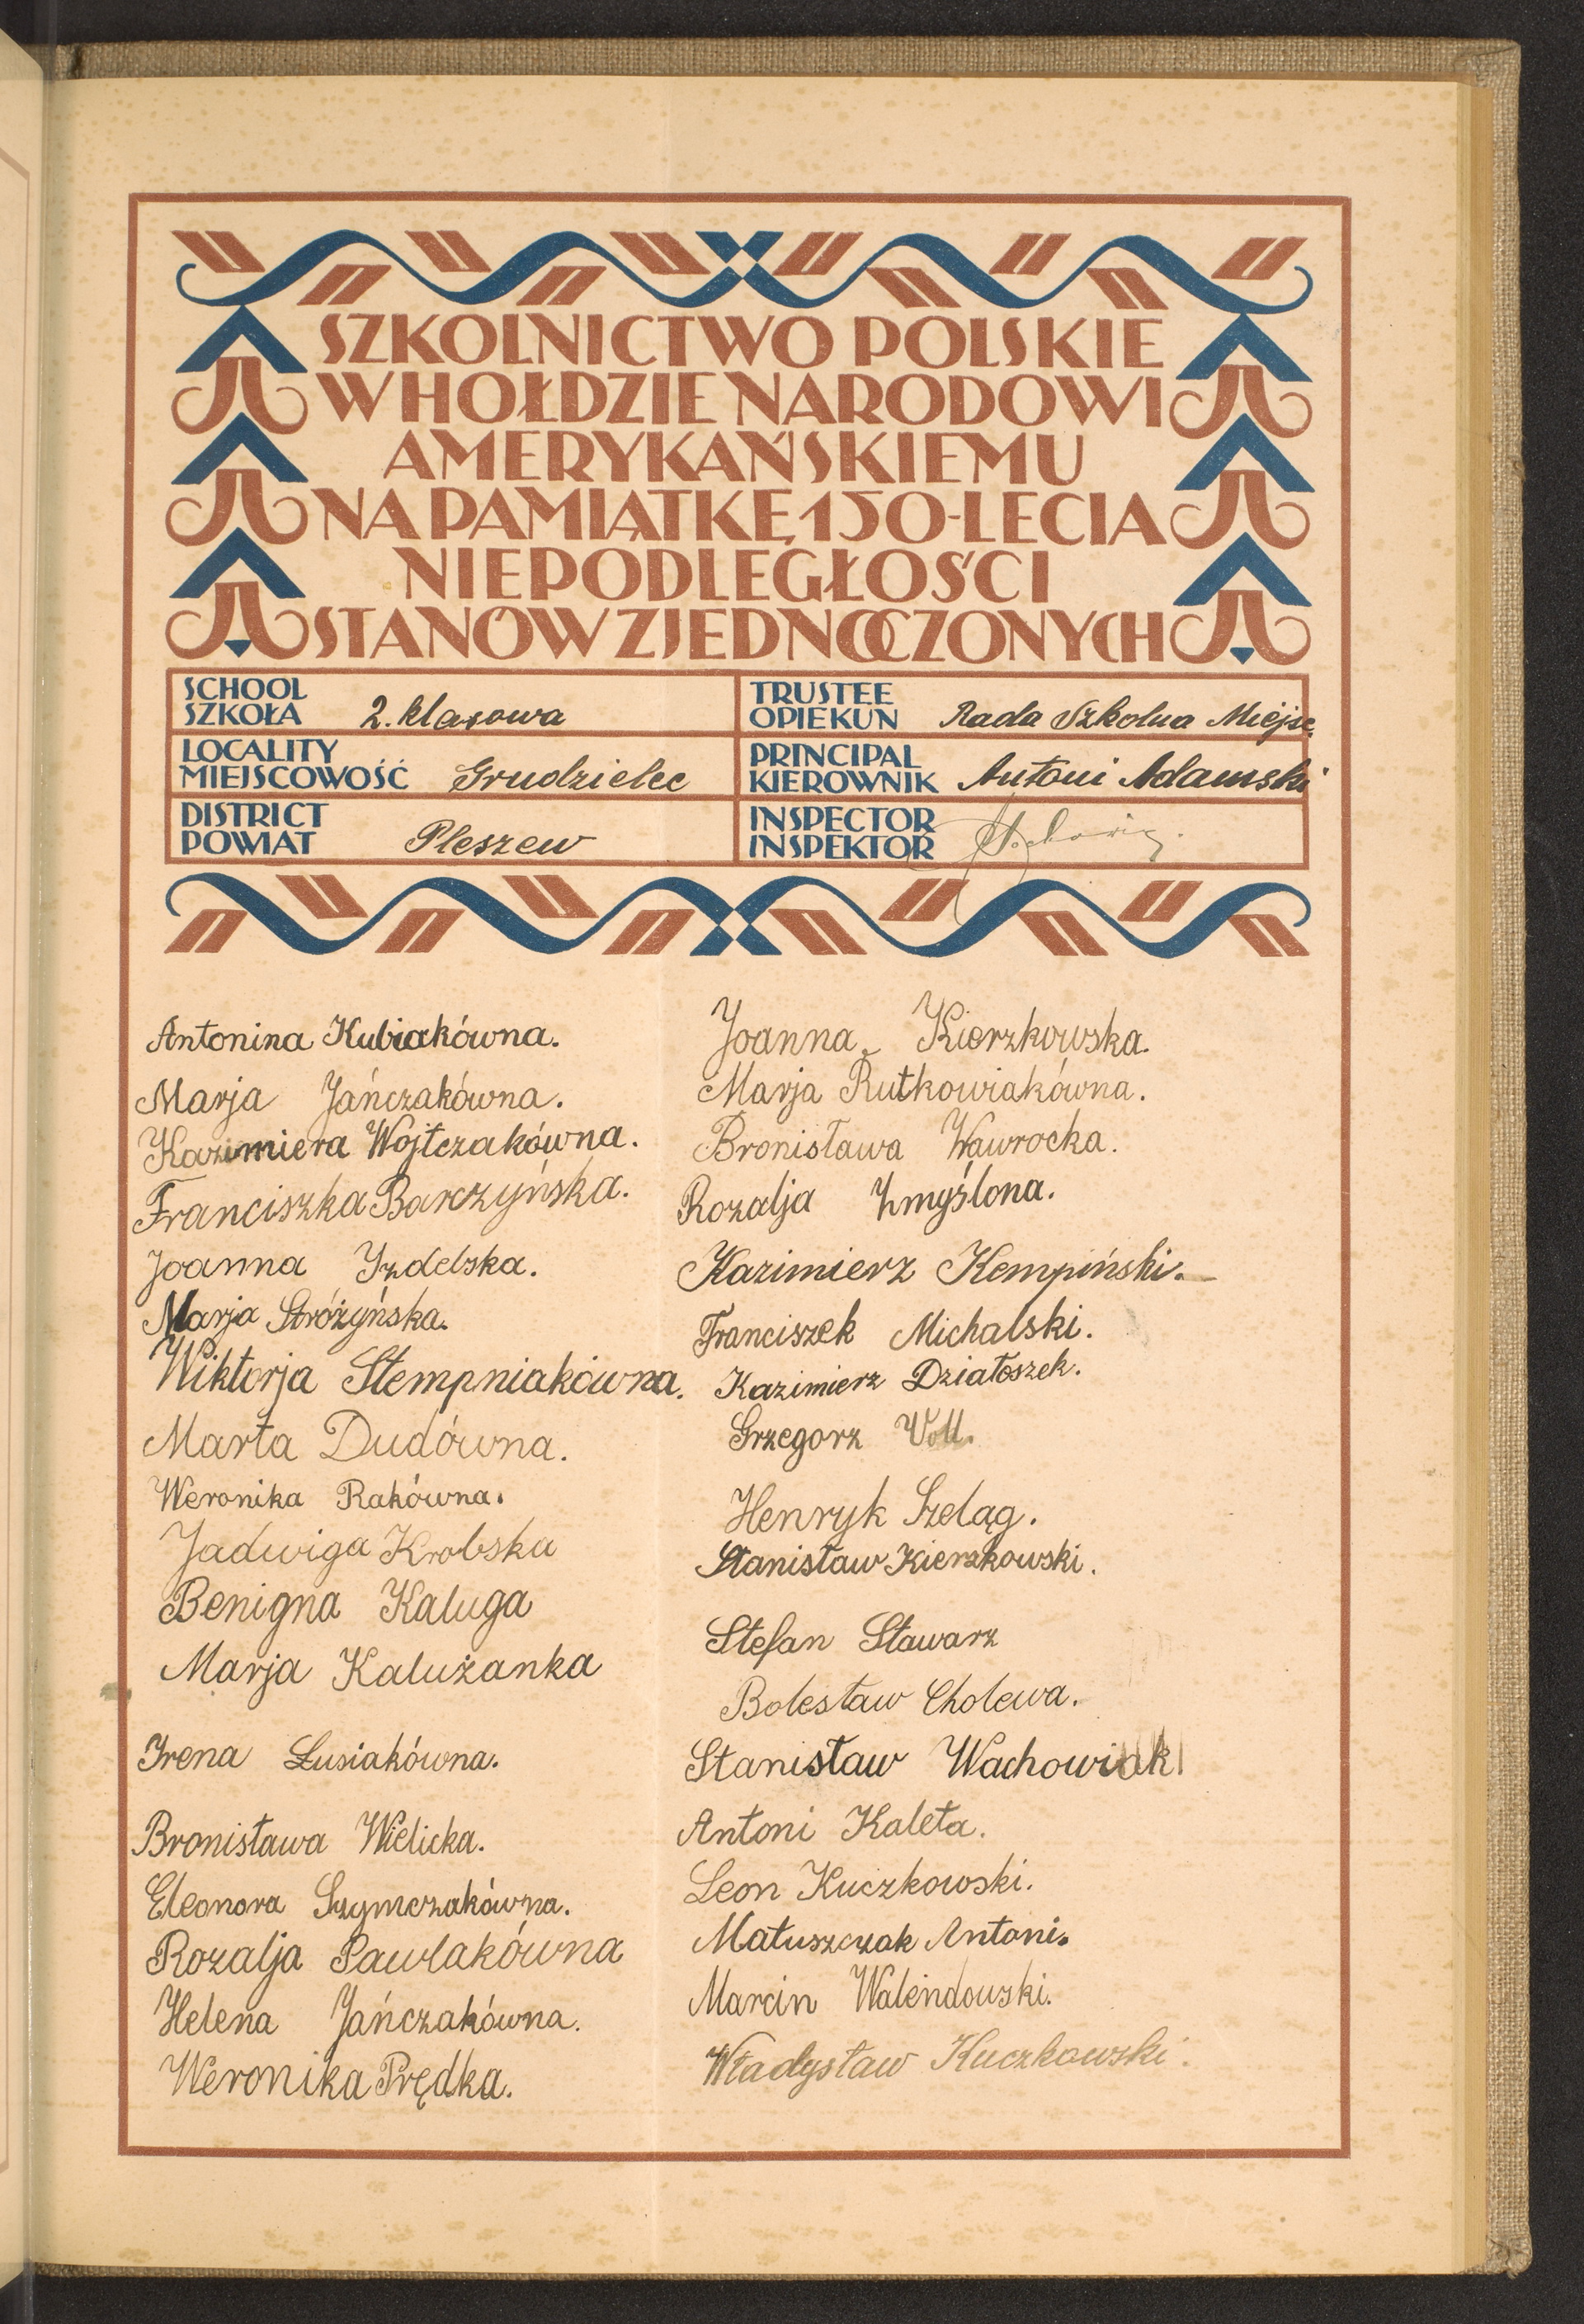 SZKOLNICTWO POLSKIE
W HOŁDZIE NARODOWI
AMERYKAŃSKIEMU
NA PAMIĄTKĘ 150-LECIA
NIEPODLEGŁOŚCI
STANÓW ZJEDNOCZONYCH
SCHOOL
SZKOŁA 2. klasowa
TRUSTEE
OPIEKUN Rada Szkolna Miejsc.
LOCALITY
MIEJSCOWOŚĆ Grudzielec
PRINCIPAL
KIEROWNIK Antoni Adamski
DISTRICT
POWIAT Pleszew
INSPECTOR
INSPEKTOR
Antonina Kubiakówna.
Marja Jańczakówna.
Kazimiera Wojtczakówna.
Franciszka Barczyńska.
Joanna Izdebska.
Marja Stróżyńska.
Wiktorja Stempniakówna.
Marta Dudówna.
Weronika Rakówna.
Jadwiga Krobska
Benigna Kaługa
Marja Kałużanka
Irena Łusiakówna.
Bronisława Wielicka.
Eleonora Szymczakówna.
Rozalja Pawlakówna
Helena Jańczakówna.
Weronika Prędka.
Joanna Kierzkowska.
Marja Rutkowiakówna.
Bronisława Wawrocka.
Rozalja Zmyślona.
Kazimierz Kempiński.
Franciszek Michalski.
Kazimierz Działoszek.
Grzegorz Woll.
Henryk Szeląg.
Stanisław Kierzkowski.
Stefan Stawarz
Bolesław Cholewa.
Stanisław Wachowiak
Antoni Kaleta.
Leon Kuczkowski.
Matuszczak Antoni.
Marcin Walendowski.
Władysław Kuczkowski.